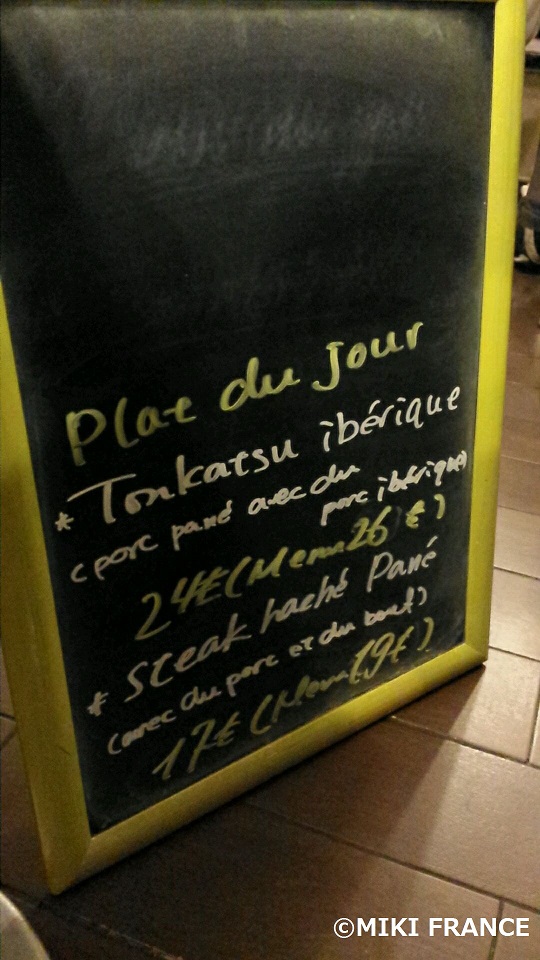 Plat du Jour
* Tonkatsu ibérique
(porc pané avec du
porc ibérique)
24€ (Menu 26 €)
* Steak haché Pané
(avec du porc et du bœuf)
17€ (Menu 19€)
©MIKI FRANCE